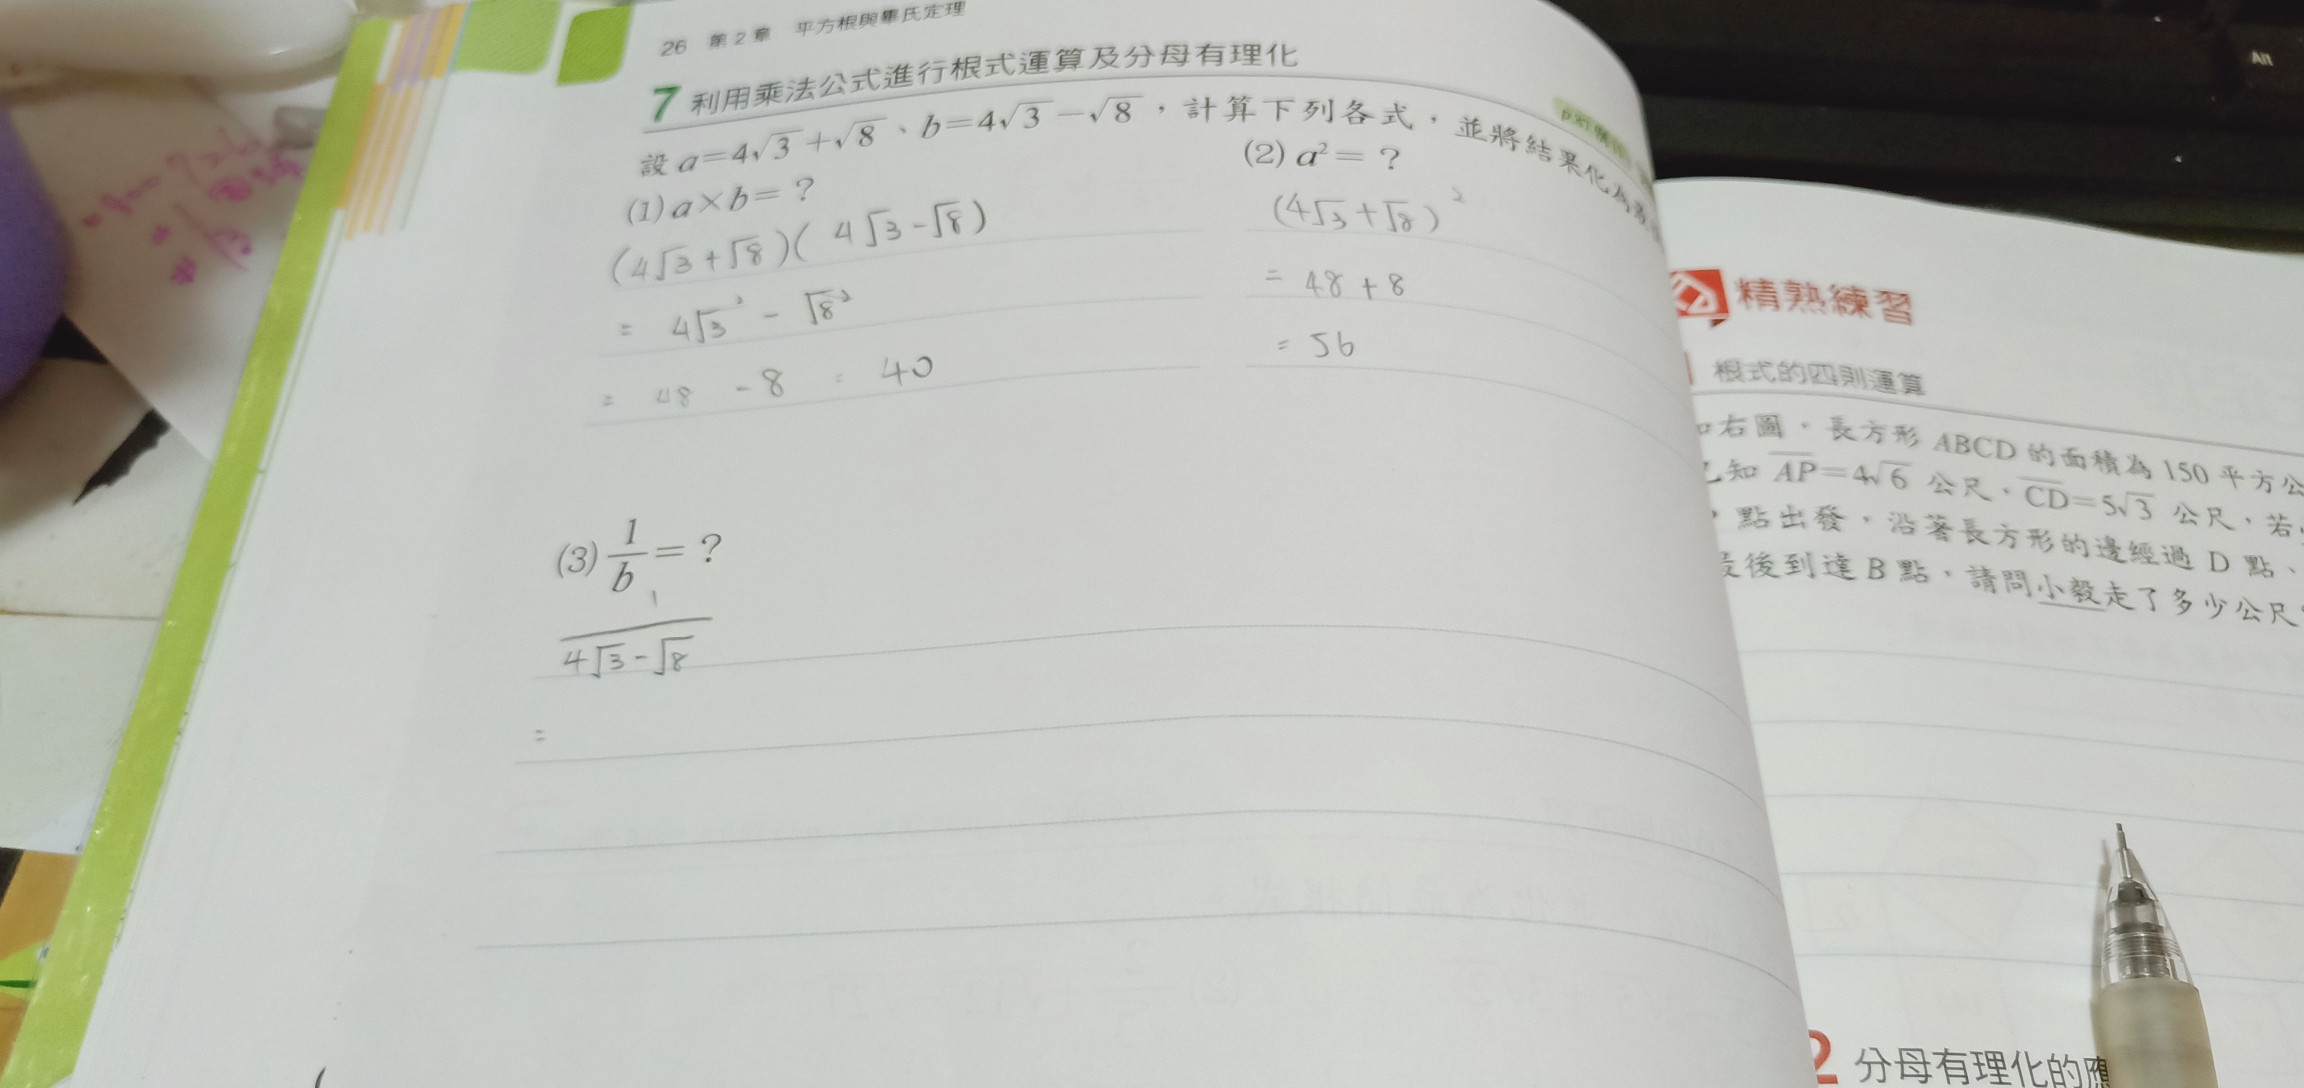 26 第2章 平方根與畢氏定理
7 利用乘法公式進行根式運算及分母有理化
設 a=4√3+√8、b=4√3-√8，計算下列各式，並將結果化為最
(1) a×b=？
(4√3+√8)(4√3-√8)
= 4√3² - √8²
= 48 - 8 = 40
(2) a²=？
(4√3+√8)²
= 48+8
= 56
(3) 1/b=？
1/(4√3-√8)
=
精熟練習
根式的四則運算
右圖，長方形 ABCD 的面積為 150 平方公
知 AP=4√6 公尺，CD=5√3 公尺，若
點出發，沿著長方形的邊經過 D 點、
後到達 B 點，請問小毅走了多少公尺
2 分母有理化的應
Alt